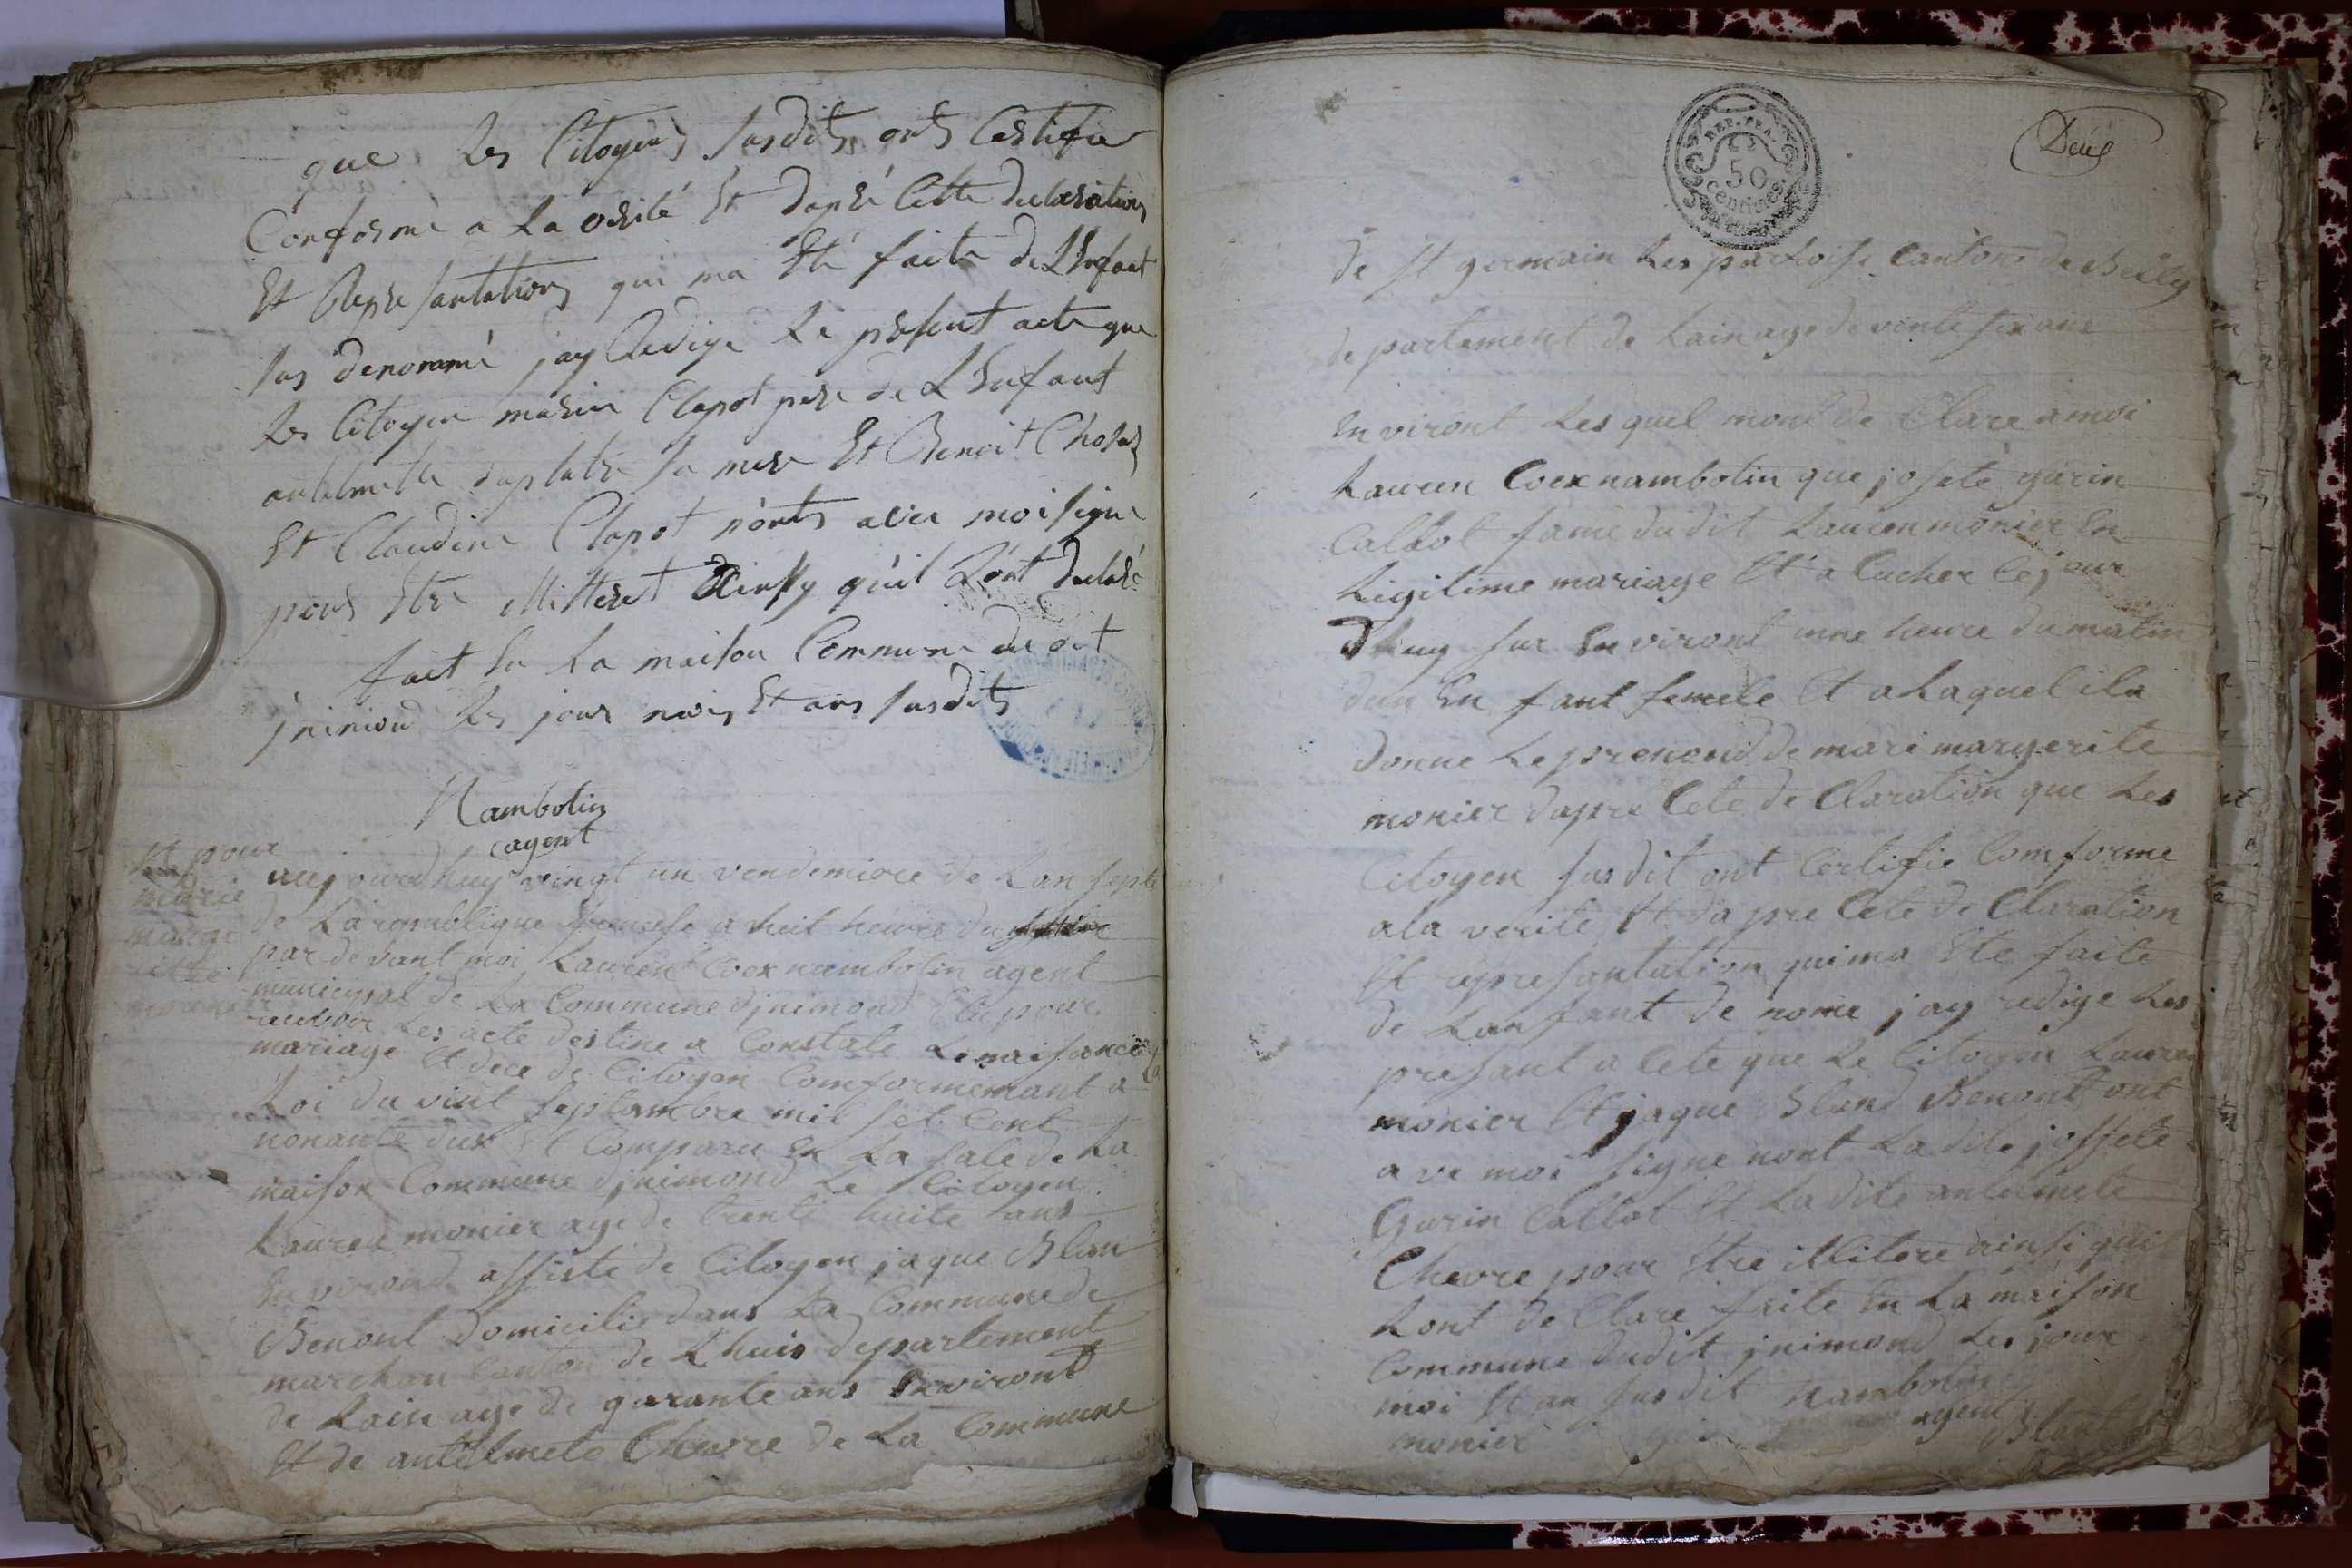 que les Citoyens susdits onts Certifié
Conforme a la vérité Et daprè Cette declaration
Et Represantation qui ma Eté faite de L'Enfant
sus denommé jay Redige le present acte que
les Citoyen Clapot pere de L'Enfant
antelmette duplatre sa mere Et Benoit
Et Claudine Clapot n'onts avec moi signe
pour Etre illitteret Ainssy qu'il L'ont declaré
fait En La maison Commune du dit
jnimond les jour mois Et ans susdits
Nambotin
agent
pour
marie
marge
ritte
aujourdhuy vingt un vendemiore de Lan septe
de La republique francese a huit heure du
par devant moi Laurent Coex nambotin agent
municypal de La Commune djnimond Elu pour
recevoir Les acte destine a Constate Le naisance
mariage Et dece de Citoyen Comformemant a La
Loi du vint septambre mil set Cent
nonante dux Et Comparu En La sale de La
maison Commune djnimond Le Citoyen
Lauren monier age de trente huite ans
Environd assiste de Citoyen jaque Blan
Benont domicilie dans La Commune de
marchan Canton de Lhuis departement
de Lain age de quarante ans Environt
Et de antelmete Chevre de La Commune
REP. FRA.
50
Centimes
de St germain Les paroise Canton de Belley
departement de Lain age de vinte six ans
Environt Les quel mont de Clare a moi
Lauren Coex nambotin que josete gurin
Caltot fame du dit Lauren monier En
Legitime mariage Et a Cucher Ce jour
Dhuy sur Environt une heure du matin
dun En fant femele Et a Laquel il a
donne Le prenond de mari margerite
monier dapre Cete de Claration que Les
Citoyen susdit ont Certifie Comforme
a la verite Et da pre Cete de Claration
Et represantation qui ma Ete faite
de Lanfant de nome jay redige Les
presant a Cete que Le Citoyen Lauren
monier Et jaque Bland Benont ont
a ve moi signe nont La dite jossete
Gurin Caltot Et La dite antelmete
Chevre pour Etre illitere ainsi quil
Lont de Clare faite En La maison
Commune dudit jnimond Les jour
moi Et an susdit Nambotin
monier agent Blanc